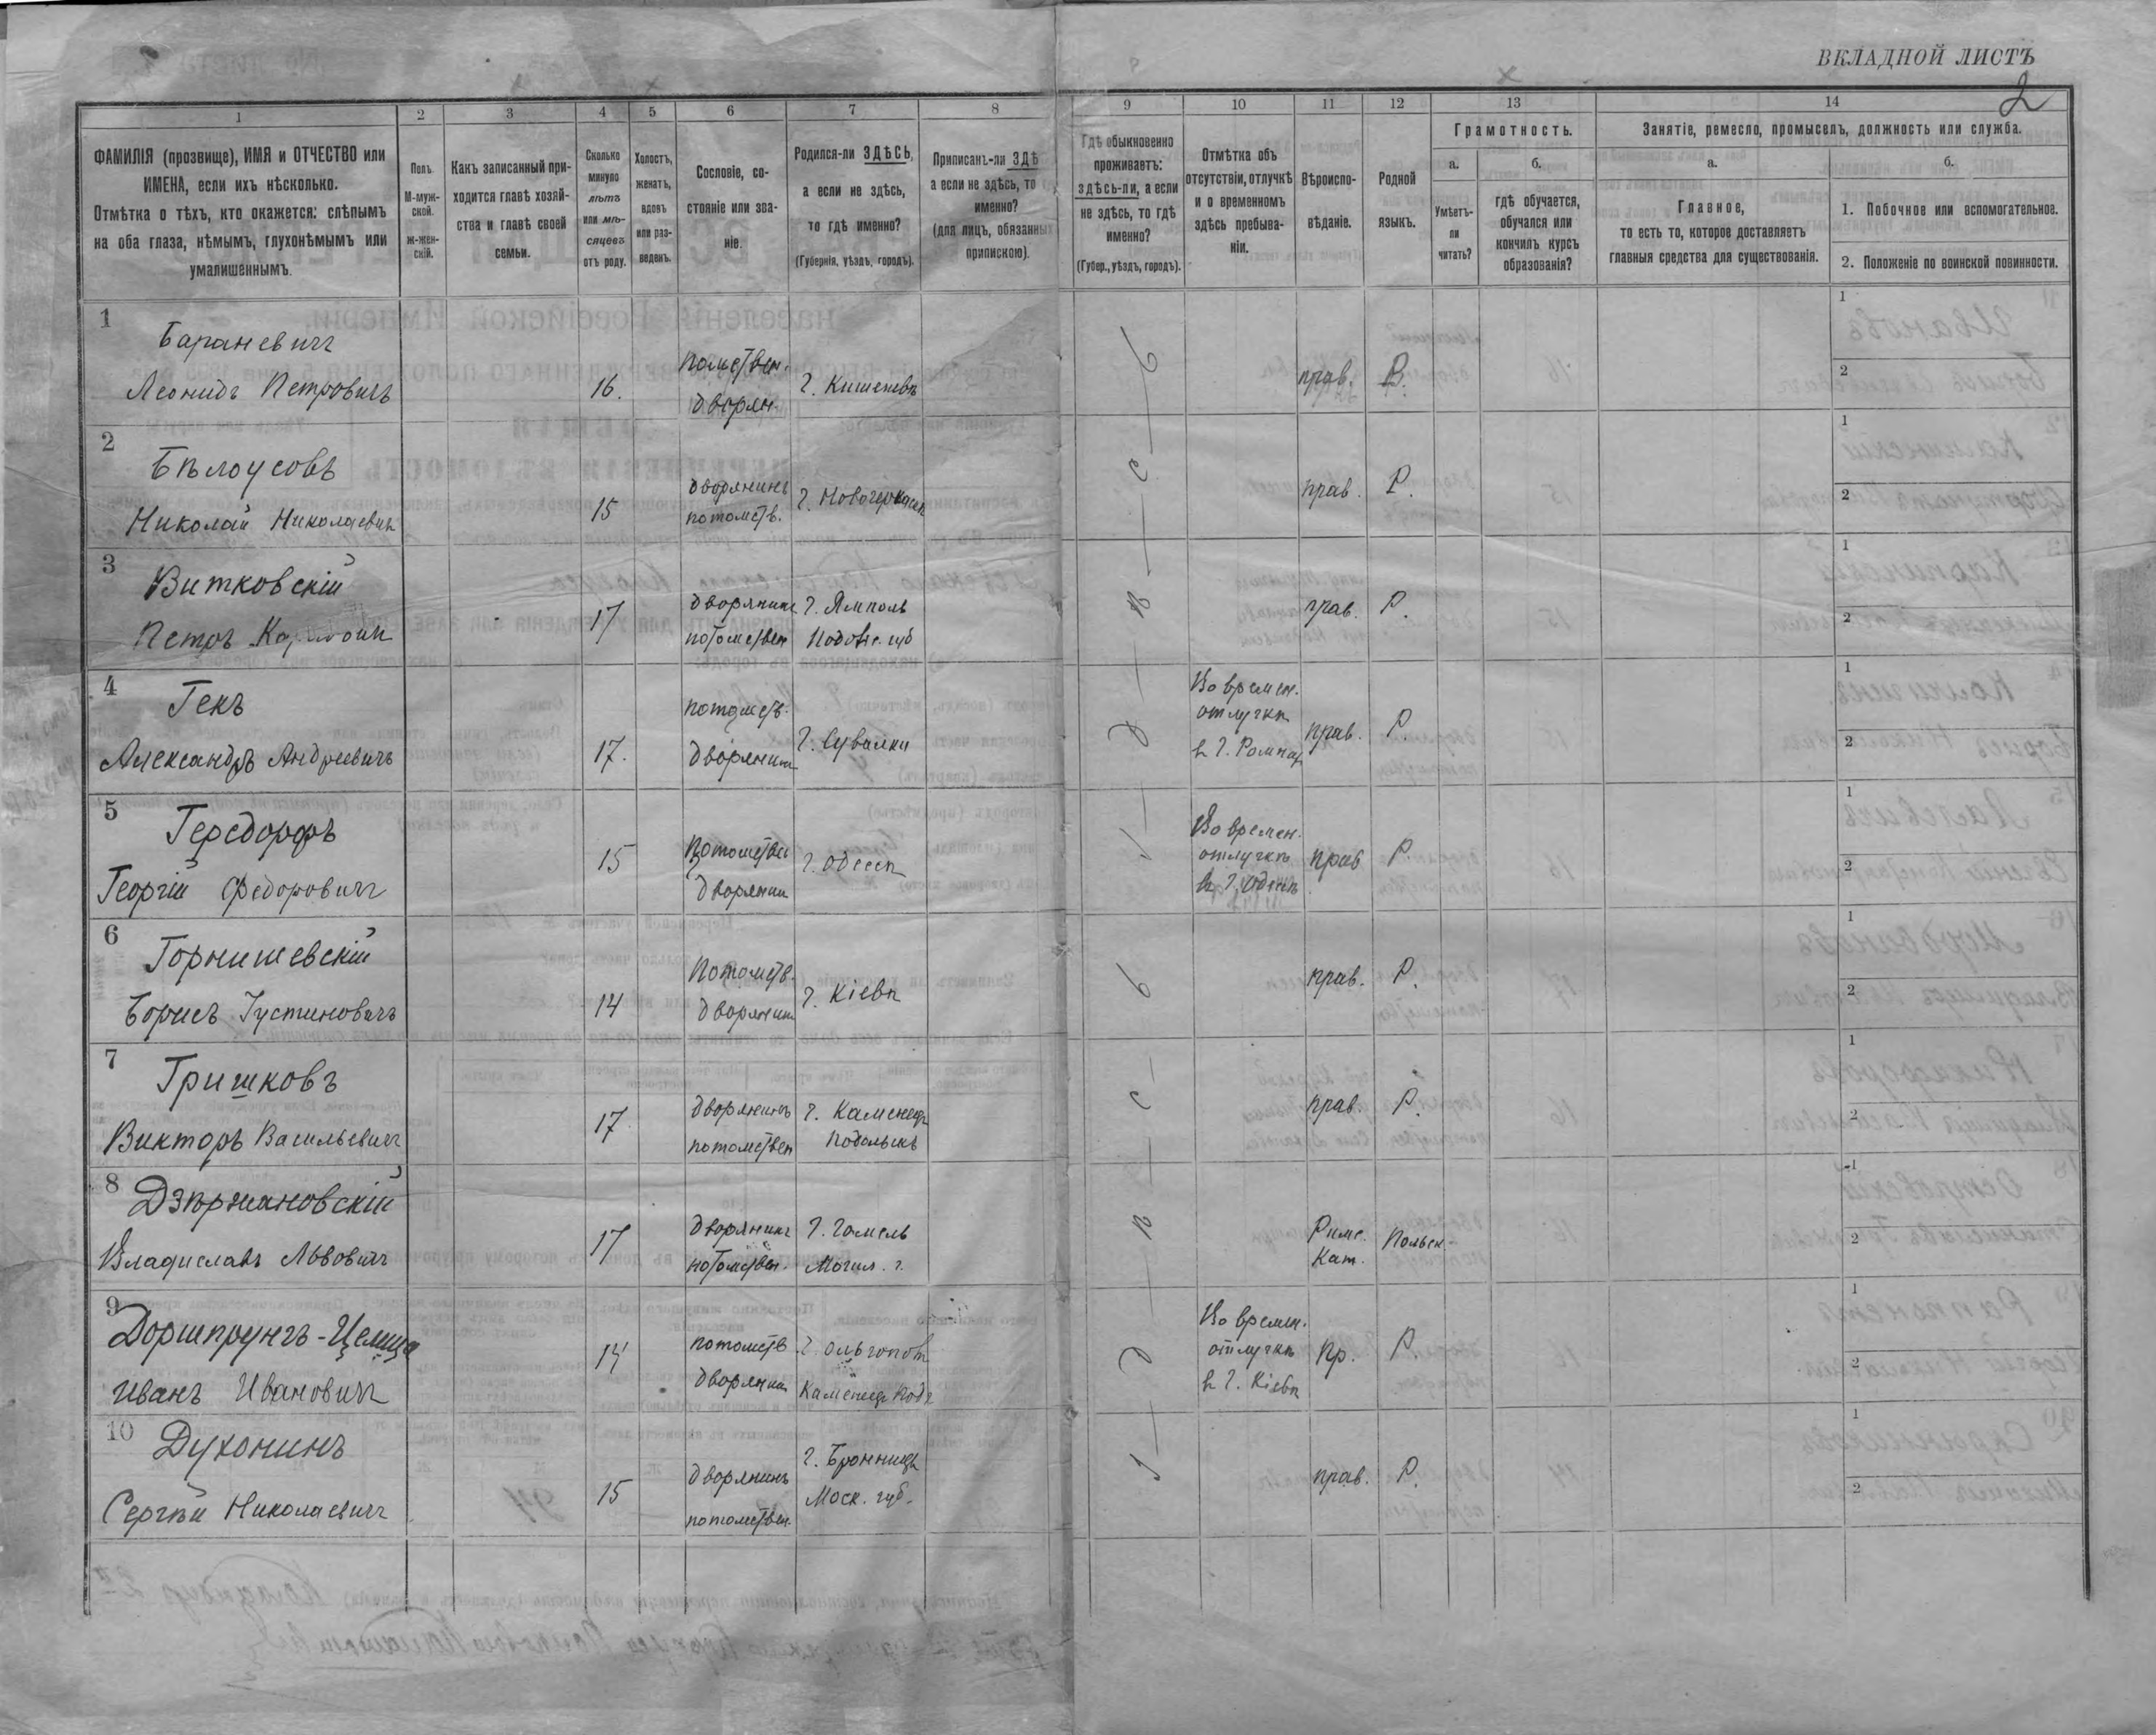 ВКЛАДНОЙ ЛИСТЪ
2
1 2 3 4 5 6 7 8 9 10 11 12 13 14
ФАМИЛІЯ (прозвище), ИМЯ и ОТЧЕСТВО или
ИМЕНА, если ихъ нѣсколько.
Отмѣтка о тѣхъ, кто окажется: слѣпымъ
на оба глаза, нѣмымъ, глухонѣмымъ или
умалишеннымъ.
Полъ.
М-муж-
ской.
ж-жен-
скій.
Какъ записанный при-
ходится главѣ хозяй-
ства и главѣ своей
семьи.
Сколько
минуло
лѣтъ
или мѣ-
сяцевъ
отъ роду.
Холостъ,
женатъ,
вдовъ
или раз-
веденъ.
Сословіе, со-
стояніе или зва-
ніе.
Родился-ли ЗДѢСЬ,
а если не здѣсь,
то гдѣ именно?
(Губернія, уѣздъ, городъ).
Приписанъ-ли ЗДѢ
а если не здѣсь, то
именно?
(для лицъ, обязанны
припискою).
Гдѣ обыкновенно
проживаетъ:
здѣсь-ли, а если
не здѣсь, то гдѣ
именно?
(Губер., уѣздъ, городъ).
Отмѣтка объ
отсутствіи, отлучкѣ
и о временномъ
здѣсь пребыва-
ніи.
Вѣроиспо-
вѣданіе.
Родной
языкъ.
Грамотность.
а.
Умѣетъ-
ли
читать?
б.
гдѣ обучается,
обучался или
кончилъ курсъ
образованія?
Занятіе, ремесло, промыселъ, должность или служба.
а.
Главное,
то есть то, которое доставляетъ
главныя средства для существованія.
б.
1. Побочное или вспомогательное.
2. Положеніе по воинской повинности.
1
Бараневичъ
Леонидъ Петровичъ
16.
потствен.
дворян.
г. Кишеневъ
прав.
Р.
1
2
2
Бѣлоусовъ
Николай Николаевич
15
дворянинъ
потомств.
г. Новочеркаск
прав.
Р.
1
2
3
Витковскій
Петръ
17
дворянинъ
потомствен
г. Ямполь
Подольс. губ
прав.
Р.
1
2
4
Гекъ
Александръ Андреевичъ
17.
потомств.
дворянин
г. Сувалки
Во времен.
отлучкѣ
прав.
Р.
1
2
5
Герсдорфъ
Георгій Федоровичъ
15
Потомствен
дворянин
г. Одесса
Во времен.
отлучкѣ
въ г. Одессѣ
прав
Р.
1
2
6
Горнишевскій
Борисъ Густиновичъ
14
Потомств.
дворянин
г. Кіевъ
прав.
Р.
1
2
7
Гришковъ
Викторъ Васильевичъ
17
дворянинъ
потомствен
г. Каменецъ
Подольскъ
прав.
Р.
1
2
8
Дзѣржановскій
Владиславъ Львовичъ
17
дворянинъ
потомствен.
г. Гомель
Могил. г.
Римс.
Кат.
Польск.
1
2
9
Доршпрунгъ-Целица
Иванъ Ивановичъ
14
потомств
дворянин
г. Ольгополь
Каменец Под.
Во времен.
отлучкѣ
въ г. Кіевѣ
пр.
Р.
1
2
10
Духонинъ
Сергѣй Николаевичъ
15
дворянинъ
потомствен.
г. Бронницы
Моск. губ.
прав.
Р.
1
2